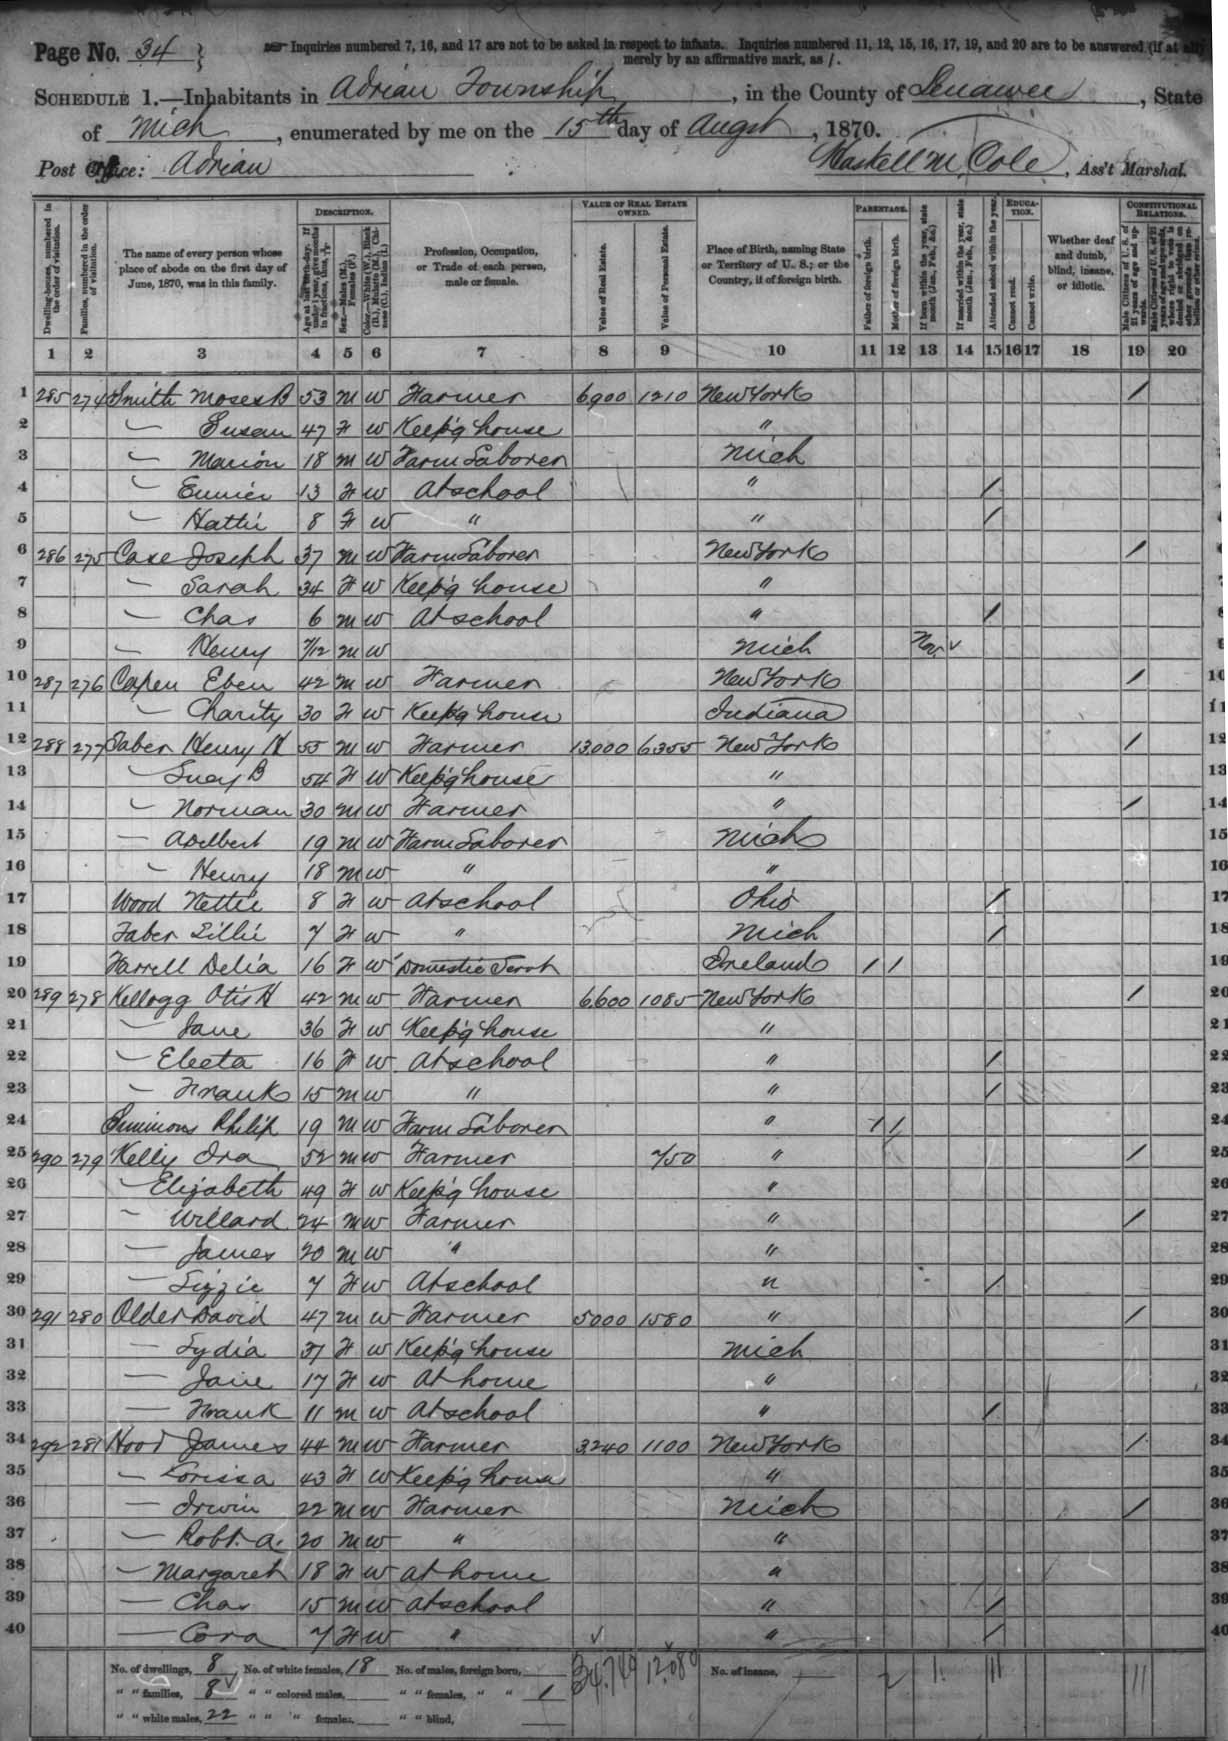 Page No. 34
Inquiries numbered 7, 16, and 17 are not to be asked in respect to infants. Inquiries numbered 11, 12, 15, 16, 17, 19, and 20 are to be answered (if at all)
merely by an affirmative mark, as /.
SCHEDULE 1.—Inhabitants in Adrian Township, in the County of Lenawee, State
of Mich, enumerated by me on the 15th day of Augst, 1870.
Post Office: Adrian Haskell M. Cole, Ass't Marshal.
DESCRIPTION. VALUE OF REAL ESTATE OWNED. PARENTAGE. EDUCATION. CONSTITUTIONAL RELATIONS.
Dwelling-houses, numbered in the order of visitation.
Families, numbered in the order of visitation.
The name of every person whose place of abode on the first day of June, 1870, was in this family.
Age at last birth-day. If under 1 year, give months in fractions, thus, 3/12
Sex.—Males (M.), Females (F.)
Color.—White (W.), Black (B.), Mulatto (M.), Chinese (C.), Indian (I.)
Profession, Occupation, or Trade of each person, male or female.
Value of Real Estate.
Value of Personal Estate.
Place of Birth, naming State or Territory of U. S.; or the Country, if of foreign birth.
Father of foreign birth.
Mother of foreign birth.
If born within the year, state month (Jan., Feb., &c.)
If married within the year, state month (Jan., Feb., &c.)
Attended school within the year.
Cannot read.
Cannot write.
Whether deaf and dumb, blind, insane, or idiotic.
Male Citizens of U. S. of 21 years of age and upwards.
1 2 3 4 5 6 7 8 9 10 11 12 13 14 15 16 17 18 19 20
1 285 274 Smith Moses B 53 M W Farmer 6,900 1210 New York / 1
2 — Susan 47 F W Keep'g house " 2
3 — Marion 18 M W Farm Laborer Mich 3
4 — Eunice 13 F W At school " /
5 — Hattie 8 F W " " /
6 286 275 Case Joseph 37 M W Farm Laborer New York /
7 — Sarah 34 F W Keep'g house " 7
8 — Chas 6 M W At school " / 8
9 — Henry 7/12 M W Mich Nov. ✓ 9
10 287 276 Capen Eben 42 M W Farmer New York / 10
11 — Charity 30 F W Keep'g house Indiana 11
12 288 277 Taber Henry H 55 M W Farmer 13,000 6355 New York / 12
13 — Lucy B 54 F W Keep'g house " 13
14 — Norman 30 M W Farmer " / 14
15 — Adelbert 19 M W Farm Laborer Mich 15
16 — Henry 18 M W " " 16
17 Wood Nettie 8 F W At school Ohio / 17
18 Taber Lillie 7 F W " Mich / 18
19 Farrell Delia 16 F W Domestic Servt Ireland / / 19
20 289 278 Kellogg Otis H 42 M W Farmer 6,600 1085 New York / 20
21 — Jane 36 F W Keep'g house " 21
22 — Electa 16 F W At school " / 22
23 — Frank 15 M W " " / 23
24 Simmons Philip 19 M W Farm Laborer " / / 24
25 290 279 Kelly Ira 52 M W Farmer 750 " / 25
26 — Elizabeth 49 F W Keep'g house " 26
27 — Willard 24 M W Farmer " / 27
28 — James 20 M W " " 28
29 — Lizzie 7 F W At school " / 29
30 291 280 Older David 47 M W Farmer 5000 1580 " / 30
31 — Lydia 37 F W Keep'g house Mich 31
32 — Jane 17 F W At home " 32
33 — Frank 11 M W At school " / 33
34 292 281 Hood James 44 M W Farmer 3,240 1100 New York / 34
35 — Lorissa 43 F W Keep'g house " 35
36 — Irwin 22 M W Farmer Mich / 36
37 — Robt. A. 20 M W " " 37
38 — Margaret 18 F W At home " 38
39 — Chas 15 M W At school " / 39
40 — Cora 7 F W " " / 40
No. of dwellings, 8 No. of white females, 18 No. of males, foreign born, 34,740 12,080 No. of insane, 2 1 11 11
" " families, 8 " " colored males, " " females, " " 1
" " white males, 22 " " " females, " " blind,